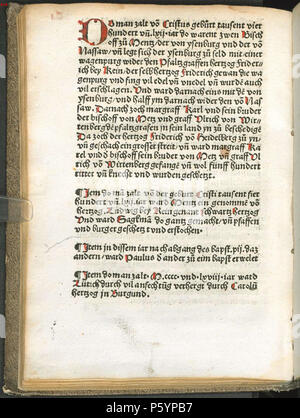 Do man zalt vō Cristus geburt tausent vier
hundert vn̄ lxij iar do warent zwen Bisch
off zů Mentz der von ysenburg vnd der vō
Nassaw, vn̄ legt sich der ysenburg zů feld mit einer
wagenpurg wider den Pfaltzgraffen hertzog frider
ich bey Rein, der selb hertzog friderich gewan die wa
genpurg vnd fing vil edel vn̄ vnedel vn̄ wurdē auch
vil erschlagen. Vnd ward darnach eins mit dē von
ysenburg, vnd halff ym darnach wider den vō Nas
saw. Darnach zoch margraff Karl vnd sein brůder
bischoff von Metz vnd graff Vlrich von Wir
tenberg dē pfaltzgrafen in sein land yn zů beschedigē
Da zoch der hertzog Friderich vō Heidelberg zů yn
geschach ein grosser streit vn̄ ward margraff Ka
rel vnd d̄ bischoff sein bruder von Metz vn̄ graff Vl
rich vō Wirtenberg gefangē vn̄ wol fünff hundert
ritter vn̄ knecht vnd wurden geschetzt.
¶ Item do mā zalt vō der geburt Cristi tausent fier
hundert vn̄ lxij iar ward Mentz ein genommē vō
hertzog Ludwig bey Reingenant schwartz hertzog
Vnd ward gantz gemacht vn̄ pfaffen
vnd burger geschetzt vnd erstochen.
¶ Item in dissem iar na chabgang des bapst pij. da z
andern ward Paulus d̄ ander zů eim bapst erwelet
¶ Item do man zalt M.cccc. vnd lxviij iar ward
Lutich durch vil anschlüg verhergt durch Carolū
hertzog in Burgund.
a
alamy
P5YPB7